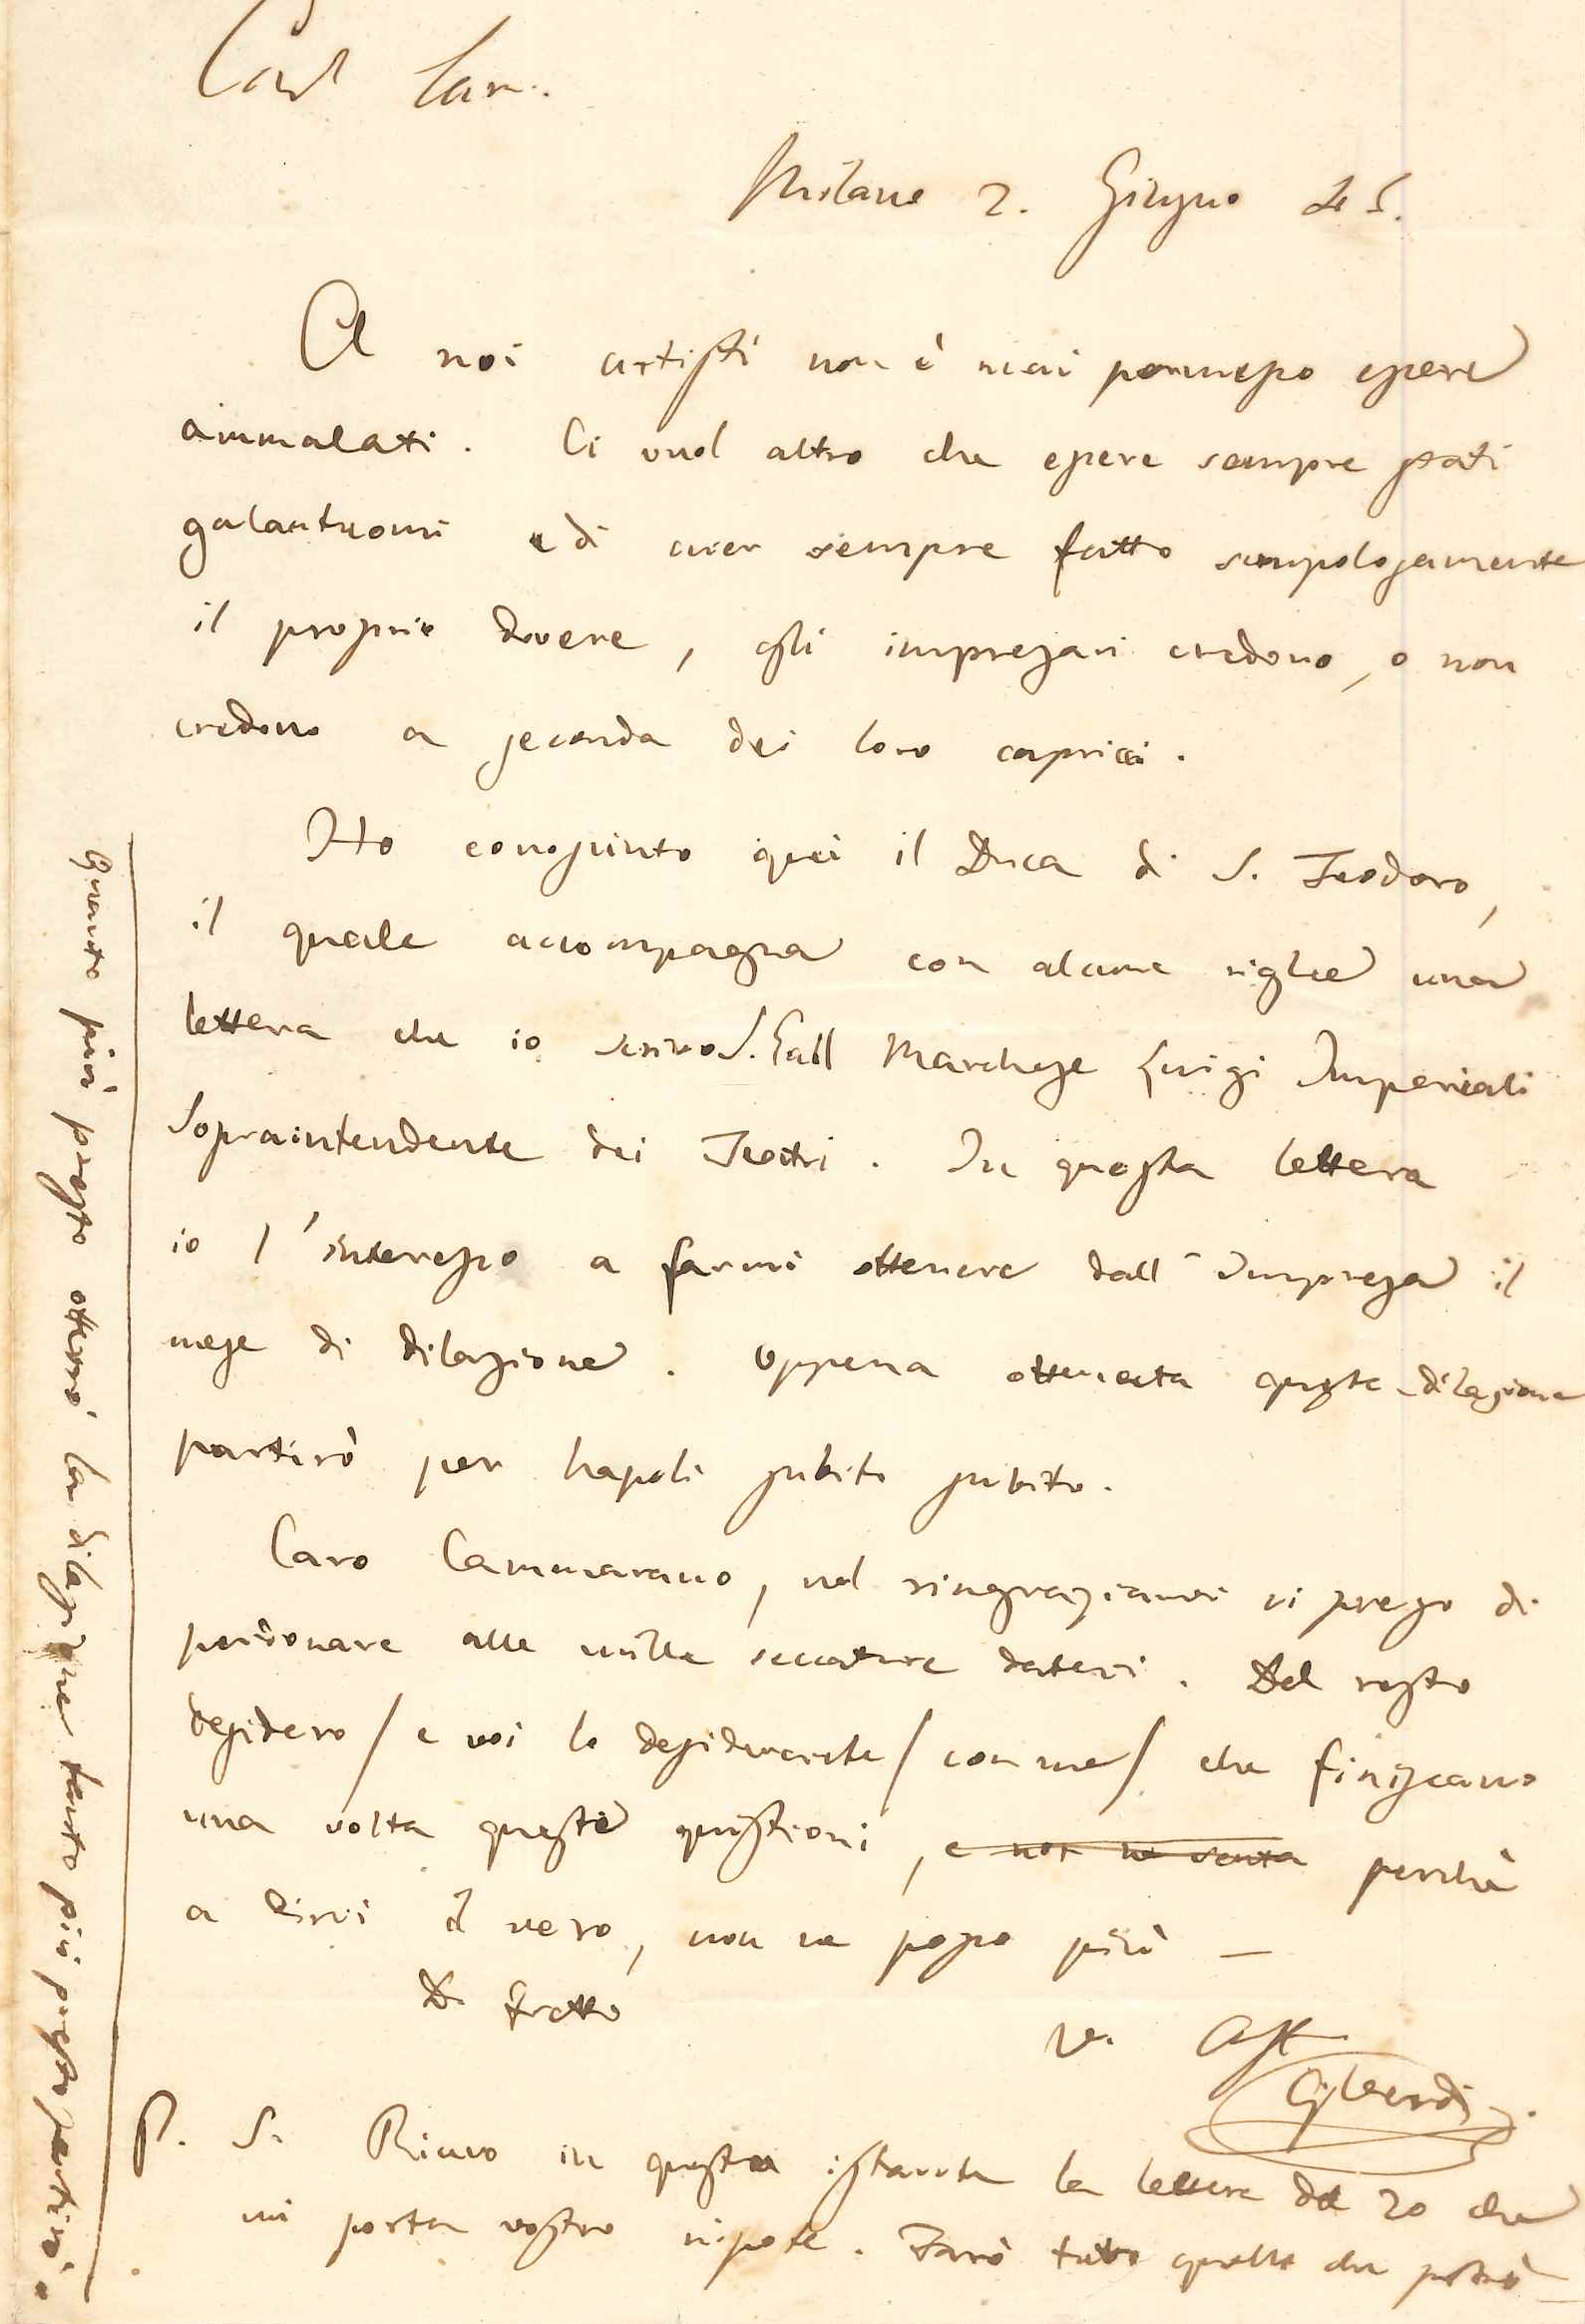 Car Cam.
Milano 2. Giugno 45.
A noi artisti non è mai permesso essere
ammalati. Ci vuol altro che essere sempre stati
galantuomi e di aver sempre fatto scrupolosamente
il proprio dovere, gli impresari credono, o non
credono a seconda dei loro capricci.
Ho conosciuto qui il Duca di S. Teodoro,
il quale accompagna con alcune righe una
lettera che io scrivo S. E. all Marchese Luigi Imperiali
Sopraintendente dei Teatri. In questa lettera
io l'interesso a farmi ottenere dall'impresa il
mese di dilazione. Appena ottenuta questa dilazione
partirò per Napoli subito subito.
Caro Cammarano, nel ringraziarvi vi prego di
perdonare alle mille seccature datevi. Del resto
desidero / e voi lo desidererete / con me / che finiscano
una volta queste quistioni, e non ne senta perchè
a dirvi il vero, non ne posso più —
Di fretta
V. Aff.
G. Verdi
P. S. Ricevo in questo istante la lettera del 20 che
mi porta vostro nipote. Farò tutto quello che potrò
Quanto più presto otterrò la dilazione tanto più presto partirò.